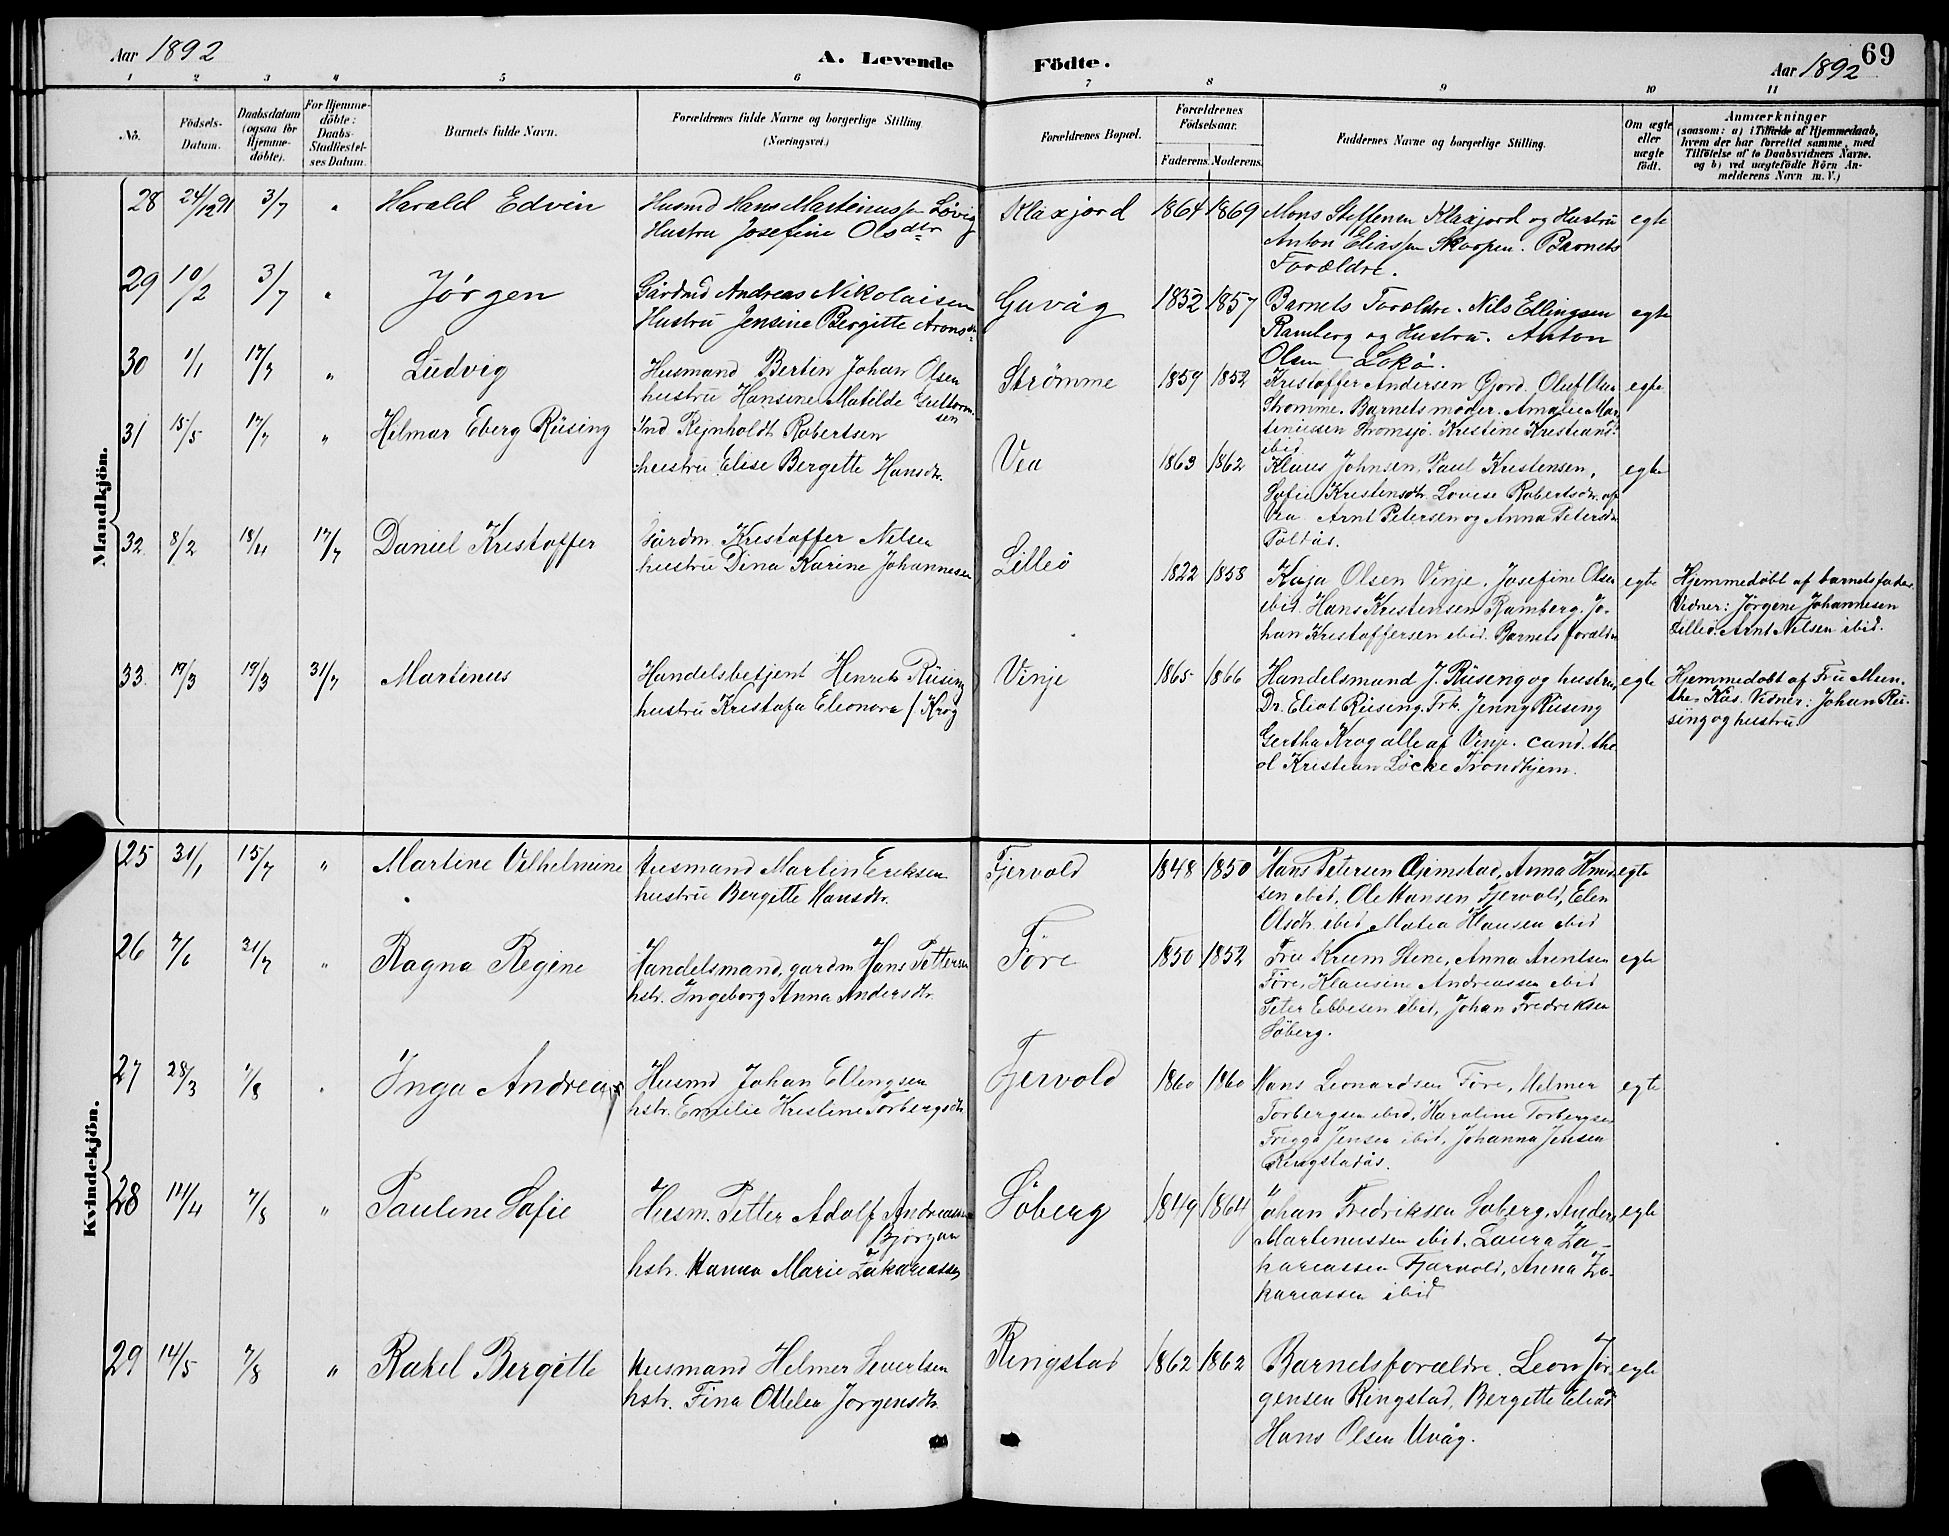 Aar 1892
A. Levende
Födte.
Aar 1892
69
1 2 3 4 5 6 7 8 9 10 11
No.
Födsels-
Datum.
Daabsdatum
(ogsaa for
Hjemme-
döbte).
For Hjemme-
döbte:
Daabs-
Stadfæstel-
ses Datum.
Barnets fulde Navn.
Forældrenes fulde Navne og borgerlige Stilling
(Næringsvei.)
Forældrenes Bopæl.
Forældrenes
Födselsaar.
Faderens. Moderens.
Faddernes Navne og borgerlige Stilling.
Om ægte
eller
uægte
födt.
Anmærkninger
(saasom: a) i Tilfælde af Hjemmedaab,
hvem der har forrettet samme, med
Tilföielse af to Daabsvidners Navne.
og b) ved uægtefödte Börn An-
melderens Navn m. V.)
Mandkjön.
28 24/12 91 3/7 " Harald Edvin
Husmd Hans Martinussen Løvig
Hustru Josefine Olsdtr
Klaxjord 1864 1869
Mons Steffensen Klaxjord og Hustru
Anton Eliassen Skorpen. Barnets
Forældre.
egte
29 10/2 3/7 " Jørgen
Gårdmd Andreas Nikolaisen
Hustru Jensine Bergitte Arons
Guvåg 1852 1857
Barnets Forældre. Nils Ellingsen
Ramberg og Hustru. Anton
Olsen Lokø.
egte
30 1/1 17/7 " Ludvig
Husmand Bertin Johan Olsen
hustru Hansine Matilde Guttorm-
sen
Strømme 1859 1852
Kristoffer Andersen Gjord. Oluf Olsen
Strømme. Barnets moder. Amalie Mar-
tinussen Stromsjø. Kristine Kristians
ibid
egte
31 15/5 17/7 " Helmar Eberg Rüsing
Ind Rejnholdt Robertsen
hustru Elise Bergette Hansdtr.
Vea 1863 1862
Klaus Johnsen, Paul Kristensen,
Sofie Kristensdtr. Lovise Robertsdtr. af
Vea Arnt Petersen og Anna Petersen
Poltås.
egte
32. 8/2 18/4 17/7 Daniel Kristoffer
Gårdm. Kristoffer Nilsen
hustru Dina Karine Johannesen
Lilleø 1822 1858
Kaja Olsen Vinje. Josefine Olsen
ibid. Hans Kristensen Ramberg. Jo-
han Kristoffersen ibid. Barnets forældre
egte
Hjemmedøbt af barnets fader.
Vidner: Jørgine Johannesen
Lilleø. Arnt Nilsen ibid.
33. 19/3 19/3 31/7 Martinus
Handelsbetjent Henrik Rüsing
hustru Kristofa Eleonora f Krog
Vinje 1865 1866
Handelsmand J. Rüsing og hustru
Dr. Eliot Rüsing. Frk. Jenny Rüsing
Gertha Krog alle af Vinje. cand. the
ol Kristian Löcke Trondhjem.
egte
Hjemmedøbt af Fru Mun-
the, Kås. Vidner: Johan Rü-
sing og hustru.
Kvindekjön.
25 31/1 15/7 " Martine Vilhelmine
Husmand Martin Eriksen
hustru Bergitte Hansdtr.
Fjervold 1848 1850
Hans Petersen Gjimstad, Anna Knud-
sen ibid. Ole Hansen Fjervold, Elen
Olsdtr. ibid Matea Hansen ibid
egte
26 7/6 31/7 " Ragna Regine
Handelsmand, gardm Hans Pettersen
hstr. Ingeborg Anna Andersdtr.
Føre 1850 1852
Fru Krum Stene, Anna Arentsen
Føre, Klausine Andreassen ibid
Peter Ebbesen ibid, Johan Fredriksen
Søberg.
egte
27 28/3 7/8 " Inga Andrea
Husmd Johan Ellingsen
hstr. Emilie Kristine Torbergsdtr.
Fjervold 1860 1860
Hans Leonardsen Føre, Helmer
Torbergsen ibid, Karoline Torbergsen
Trigga Jensen ibid, Johanna Jensen
Ringstadås.
egte
28 14/4 7/8 " Pauline Sofie
Husm. Petter Adolf Andreassen
Bjørgan
hstr. Hanna Marie Zakariassen
Søberg 1849 1864
Johan Fredriksen Søberg, Anders
Martinussen ibid. Laura Za-
kariassen Fjærvold, Anna Za-
kariassen ibid
egte
29 14/5 7/8 " Rakel Bergitte
Husmand Helmer Sivertsen
hstr. Fina Ottelia Jørgensdtr.
Ringstad 1862 1862
Barnets forældre. Leon Jør-
gensen Ringstad, Bergitte
Hans Olsen Uvåg.
egte